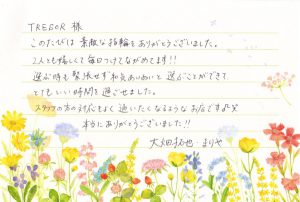 TRESOR 様
このたびは 素敵な指輪をありがとうございました。
2人とも嬉しくて毎日つけてながめてます!!
選ぶ時も緊張せず和気あいあいと 選ぶことができて
とても いい時間を過ごせました。
スタッフの方の対応もよく 通いたくなるような お店です
本当にありがとうございました!!
大畑 拓也・まりや